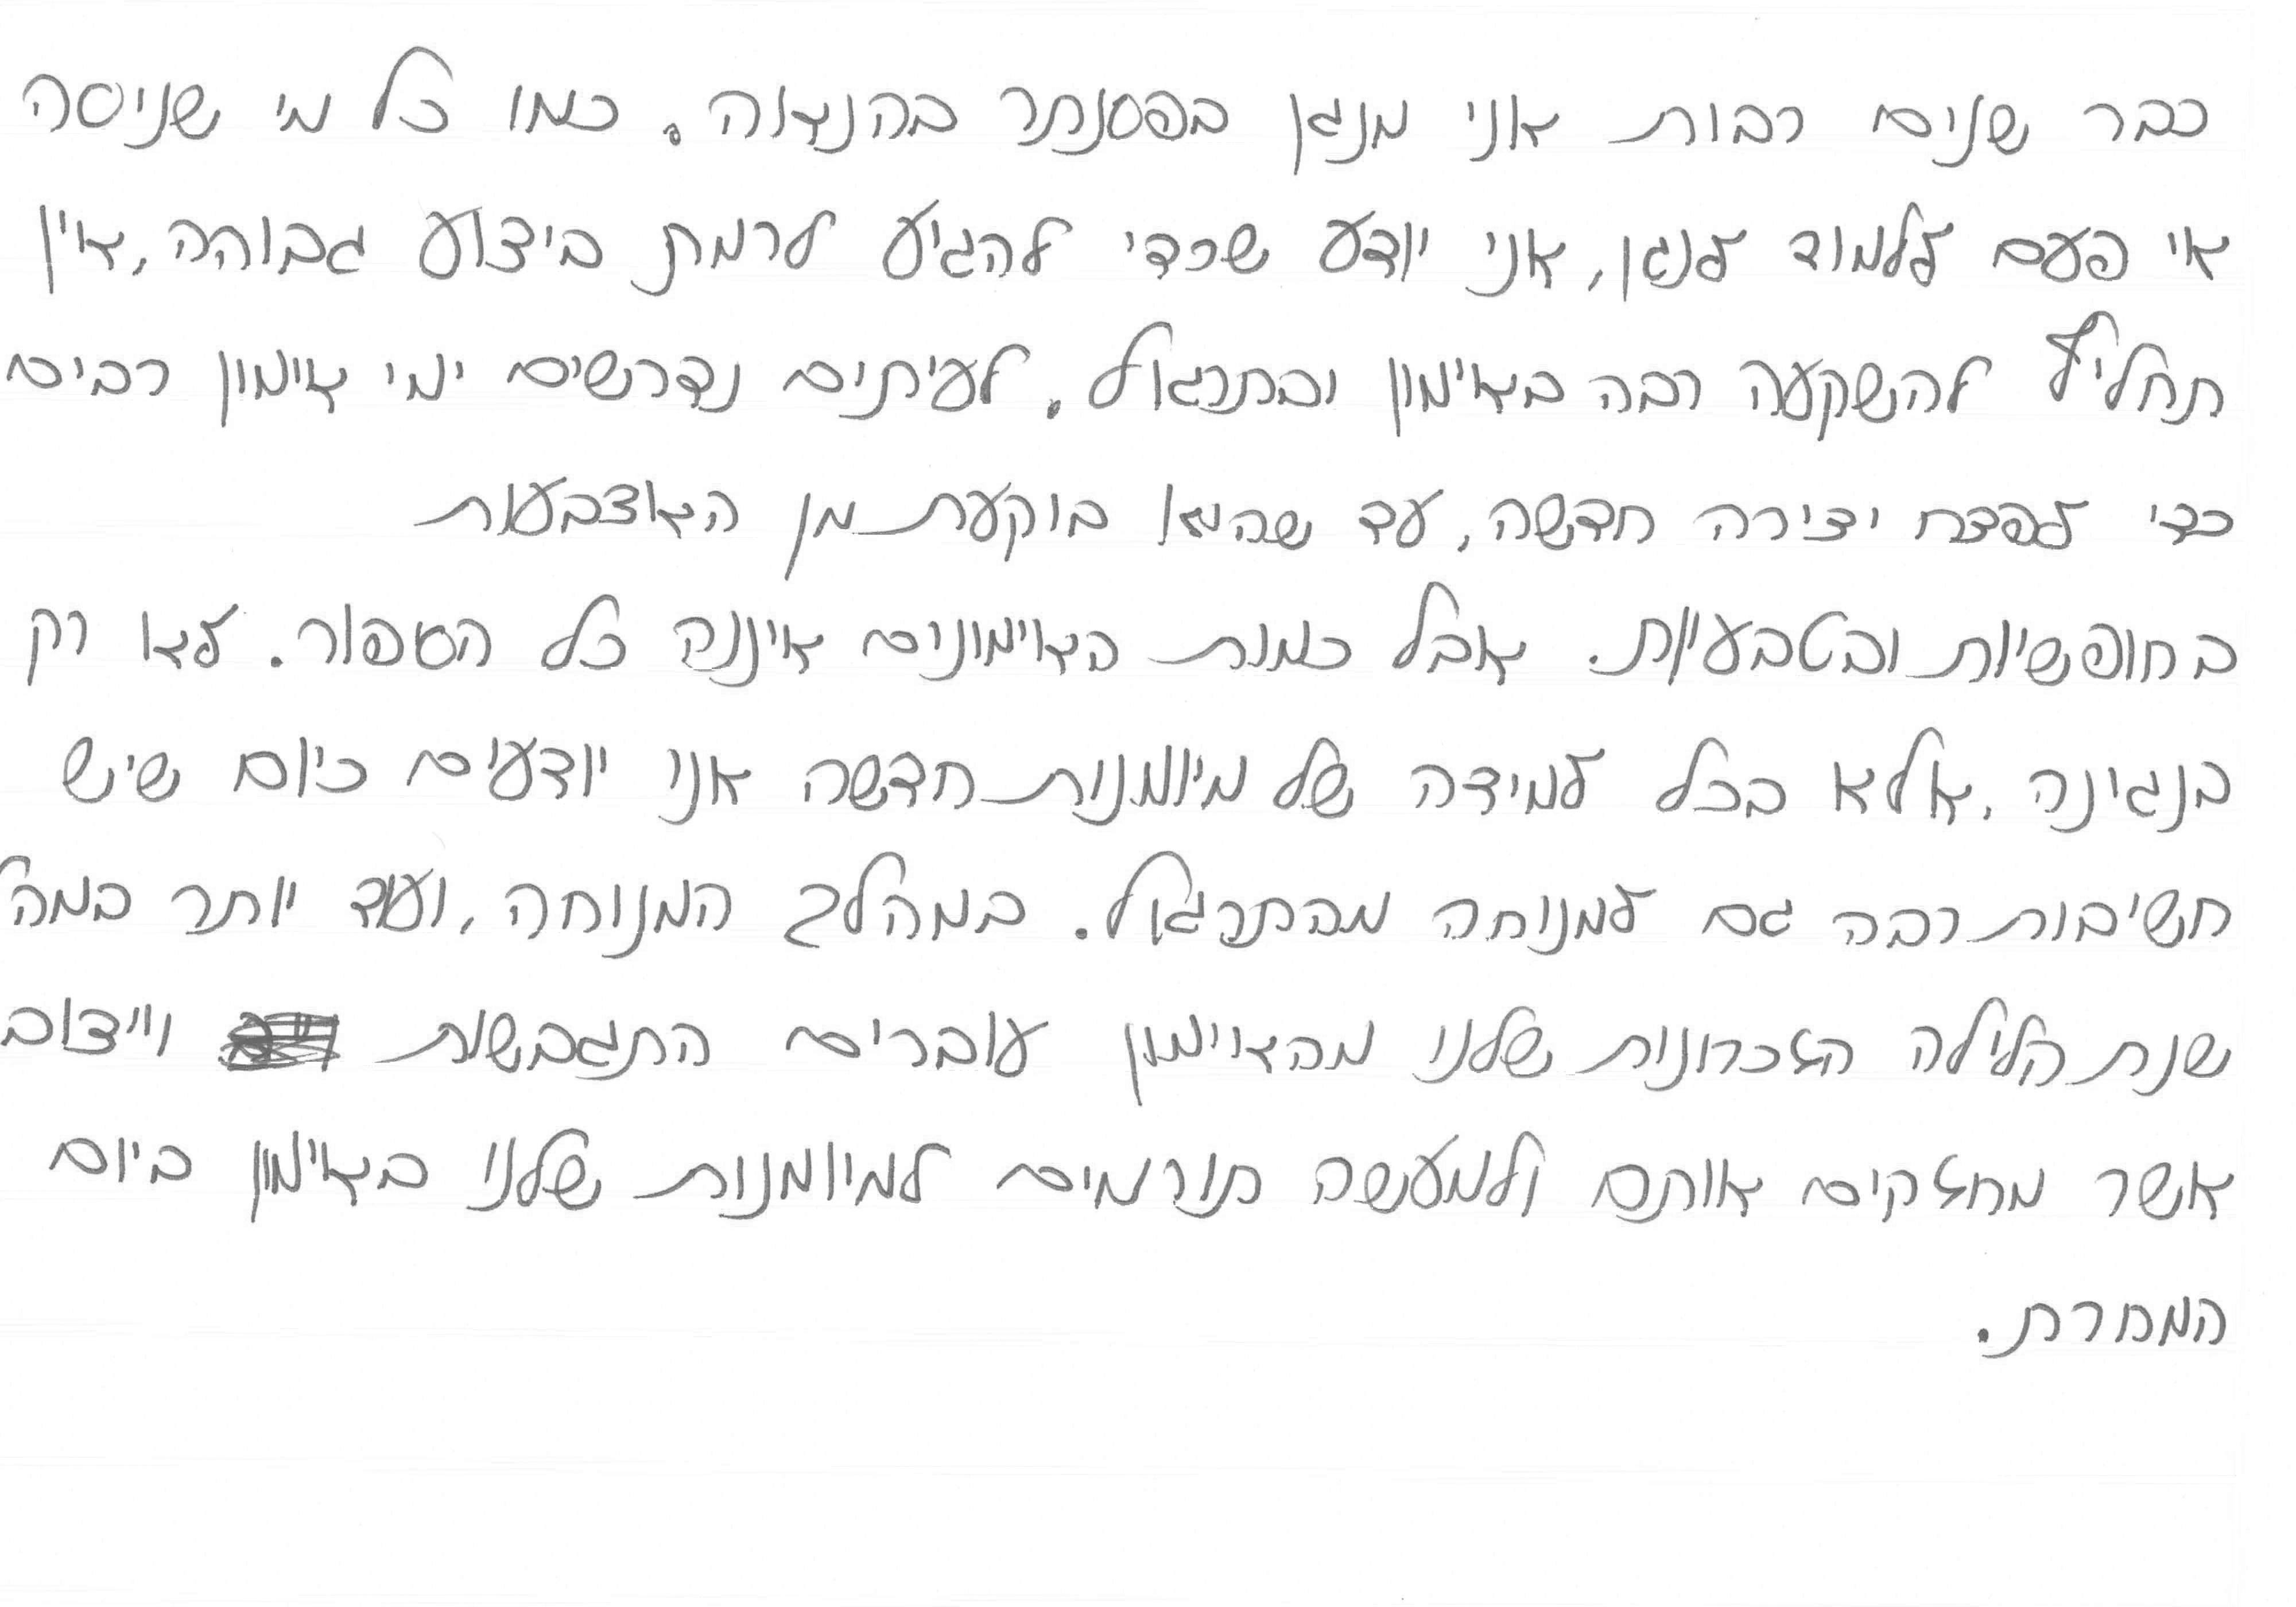 כבר שנים רבות אני מנגן בפסנתר בהנאה. כמו כל מי שניסה
אי פעם ללמוד לנגן, אני יודע שכדי להגיע לרמת ביצוע גבוהה, אין
תחליף להשקעה רבה באימון ובתרגול. לעיתים נדרשים ימי אימון רבים
כדי לפצח יצירה חדשה, עד שהיא בוקעת מן האצבעות
בחופשיות ובטבעיות. אבל כמות האימונים איננה כל הסיפור. לא רק
בנגינה, אלא בכל למידה של מיומנות חדשה אני יודעים כיום שיש
חשיבות רבה גם למנוחה מהתרגול. במהלך המנוחה, ועוד יותר במהל
שנת הלילה הזכרונות שלנו מהאוימון עוברים התגבשות וייצוב
אשר מחזקים אותם ולמעשה תורמים למיומנות שלנו באימון ביום
המחרת.